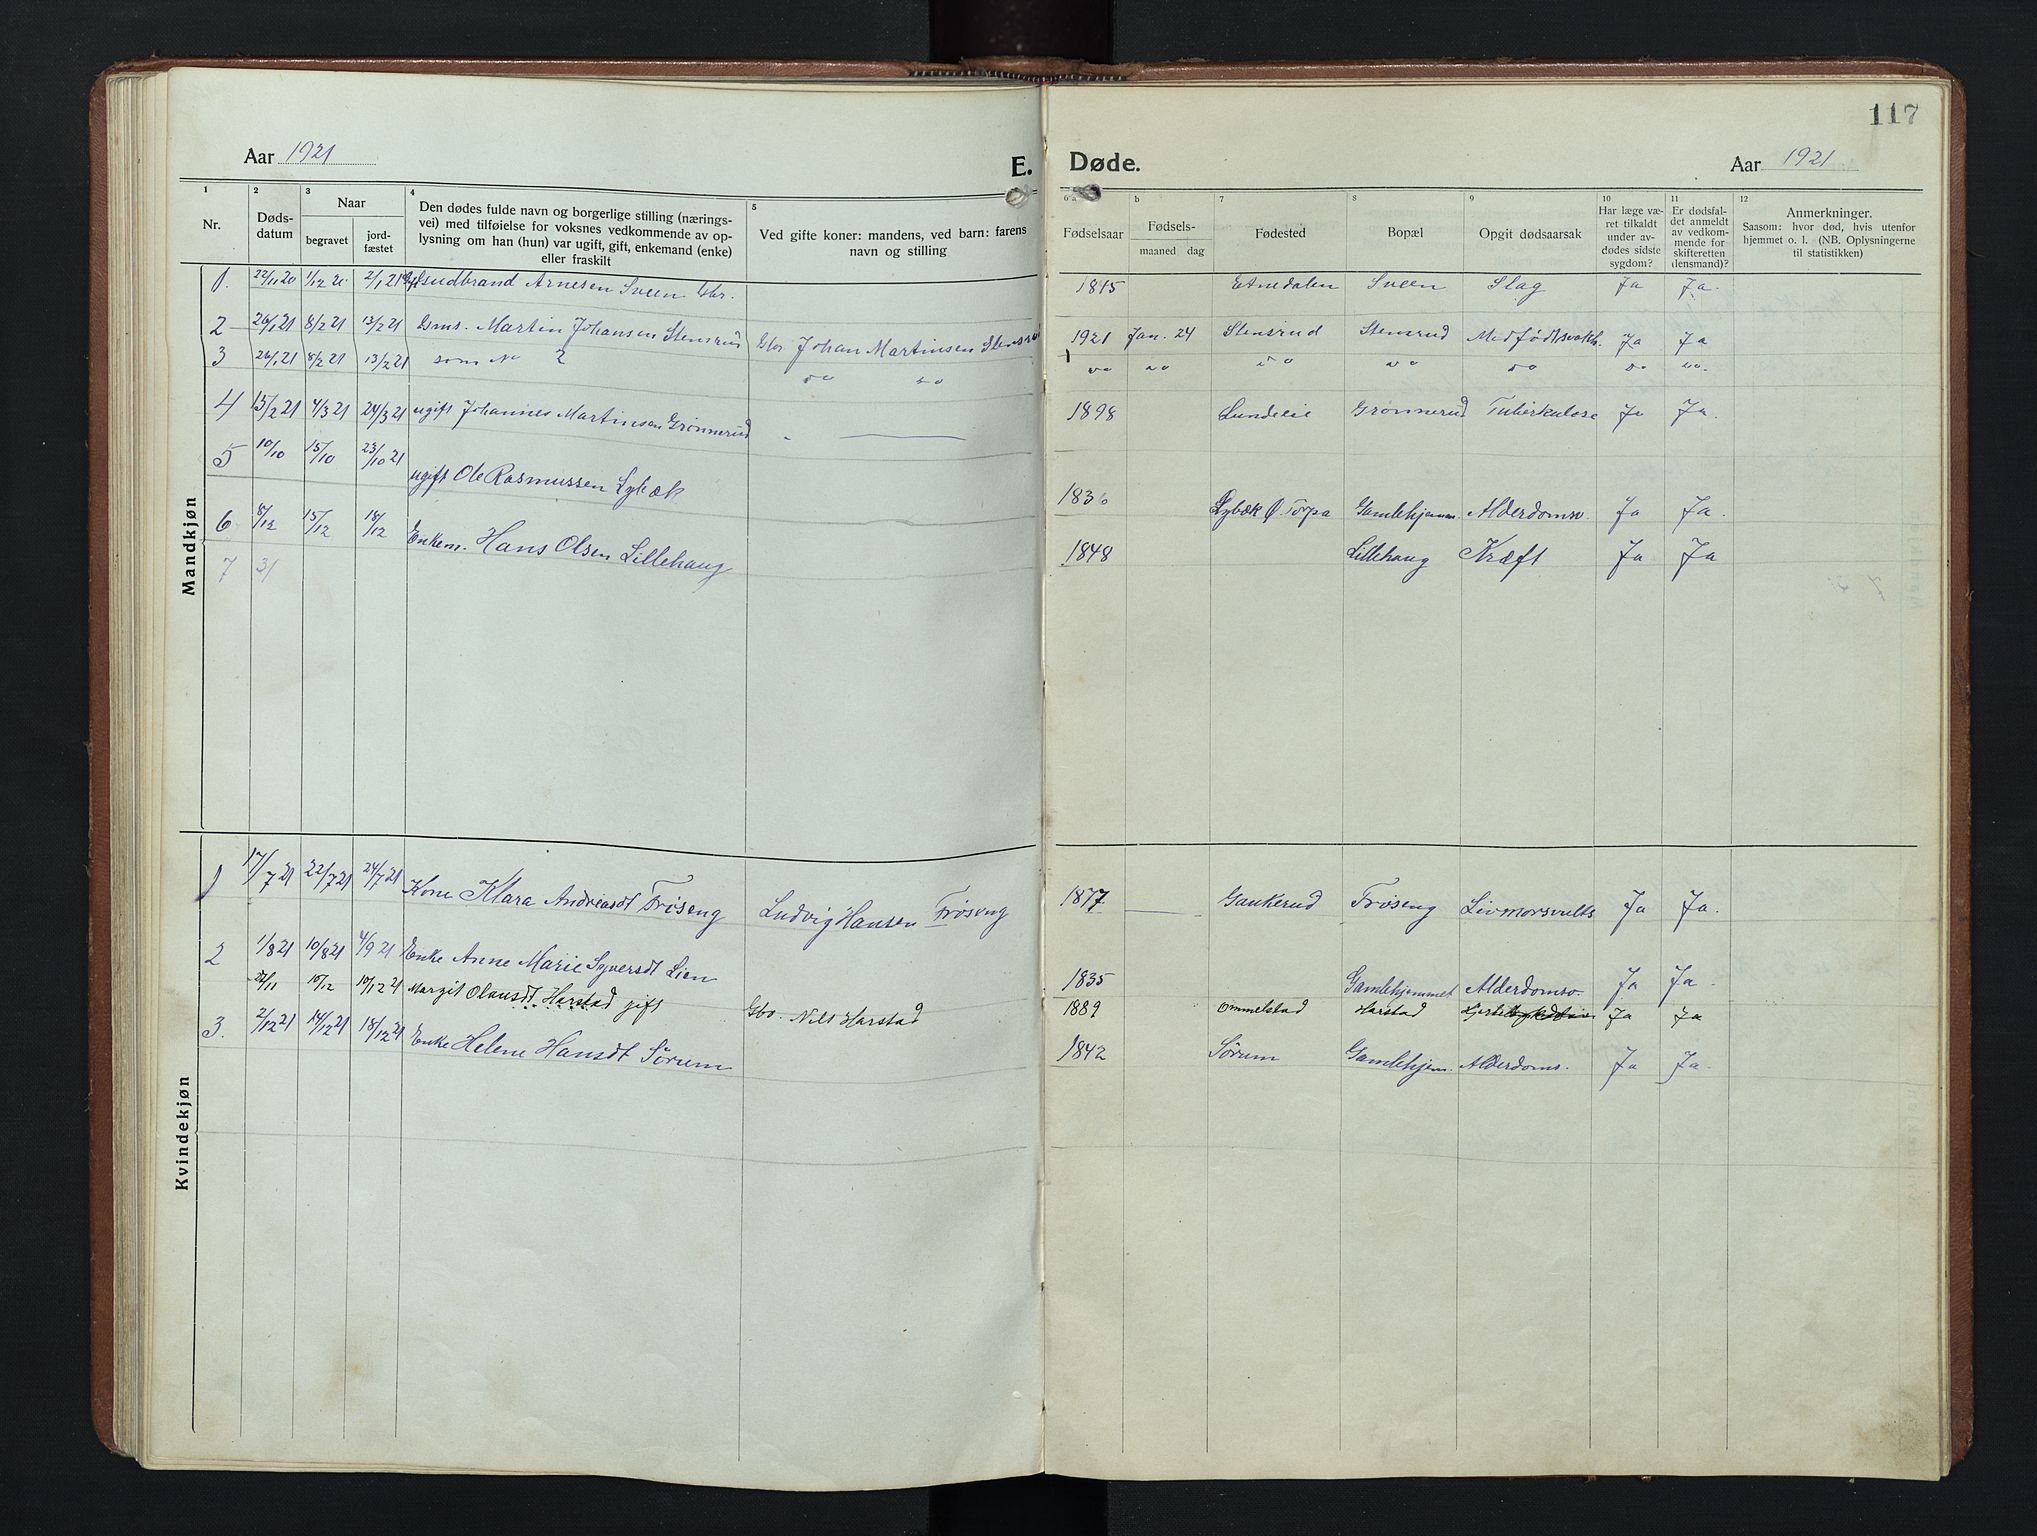 117
Aar 1921
E. Døde.
Aar 1921
1 2 3 4 5 6 a b 7 8 9 10 11 12
Nr.
Døds-
datum
Naar
begravet
jord-
fæstet
Den dødes fulde navn og borgerlige stilling (nærings-
vei) med tilføielse for voksnes vedkommende av op-
lysning om han (hun) var ugift, gift, enkemand (enke)
eller fraskilt
Ved gifte koner: mandens, ved barn: farens
navn og stilling
Fødselsaar
Fødsels-
maaned dag
Fødested
Bopæl
Opgit dødsaarsak
Har læge væ-
ret tilkaldt
under av-
dødes sidste
sygdom?
Er dødsfal-
det anmeldt
av vedkom-
mende for
skifteretten
(lensmand)?
Anmerkninger.
Saasom: hvor død, hvis utenfor
hjemmet o. l. (NB. Oplysningerne
til statistikken)
Mandkjøn
1. 22/11 20 1/12 20 2/1 21 Gudbrand Arnesen Sveen Gbr. 1845 Etnedalen Sveen Slag Ja Ja.
2 26/1 21 8/2 21 13/2 21 Gms. Martin Johansen Stensrud Gbr Johan Martinsen Stensrud 1921 Jan. 24 Stensrud Stensrud Medfødt svakh. Ja Ja
3 26/1 21 8/2 21 13/2 21 som No 2 do do do do do do do do do.
4 15/2 21 4/3 21 24/3 21 ugift Johannes Martinsen Grønnerud 1898 Lundeeie Grønnerud Tuberkulose Ja Ja.
5 10/10 15/10 23/10 21 ugift Ole Rasmussen Lybæk 1836 Lybæk Ø. Torpa Gamlehjemm. Alderdomsv. Ja Ja.
6 8/12 15/12 18/12 Enkem. Hans Olsen Lillehaug 1848 Lillehaug Kræft Ja Ja
7 31
Kvindekjøn
1 17/7 21 22/7 21 24/7 21 Kone Klara Andreasdt Frøseng Ludvig Hansen Frøseng 1877 Gaukerud Frøseng Livmorsvulst Ja Ja.
2 1/8 21 10/8 21 4/9 21 Enke Anne Marie Syversdt Lien 1835 Gamlehjemmet Alderdomsv. Ja Ja.
27/11 10/12 10/12 21 Margit Olausdt. Harstad gift Gbr. Nils Harstad 1889 Ommelstad Harstad Ja Ja
3. 2/12 21 14/12 21 18/12 21 Enke Helene Hansdt Sørum 1842 Sørum Gamlehjem. Alderdoms. Ja Ja.